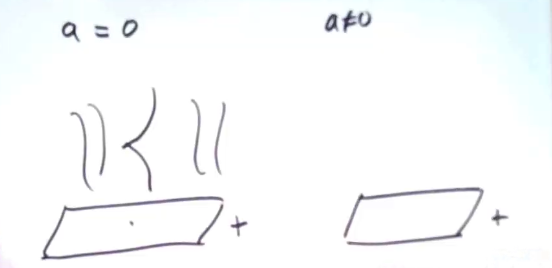 a = 0
a≠0
+
+